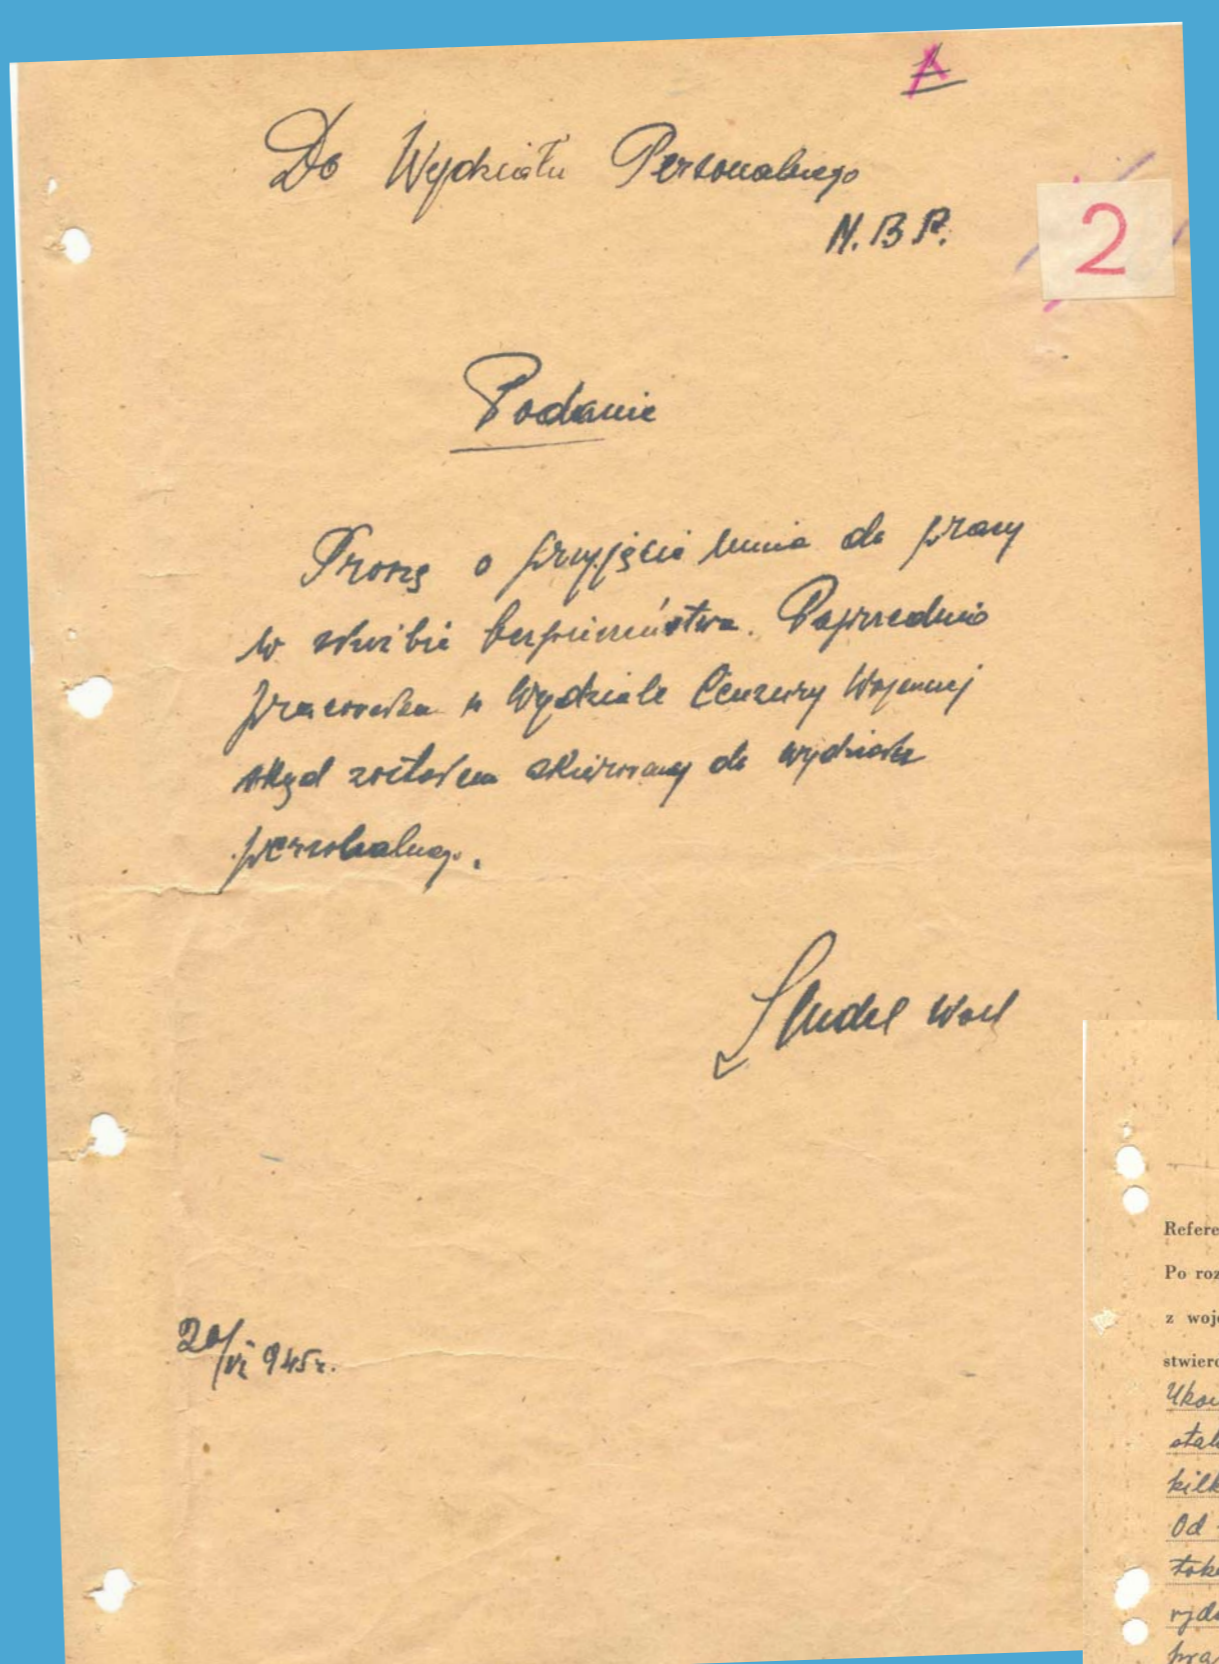 Do Wydziału Personalnego
M.B.P.
2
Podanie
Proszę o przyjęcie mnie do pracy
w służbie bezpieczeństwa. Poprzednio
pracowałem w Wydziale Cenzury Wojennej
skąd zostałem skierowany do wydziału
personalnego.
20/VI 945r.
Refere
Po roz
z woj
stwierd
stał
kilk
Od